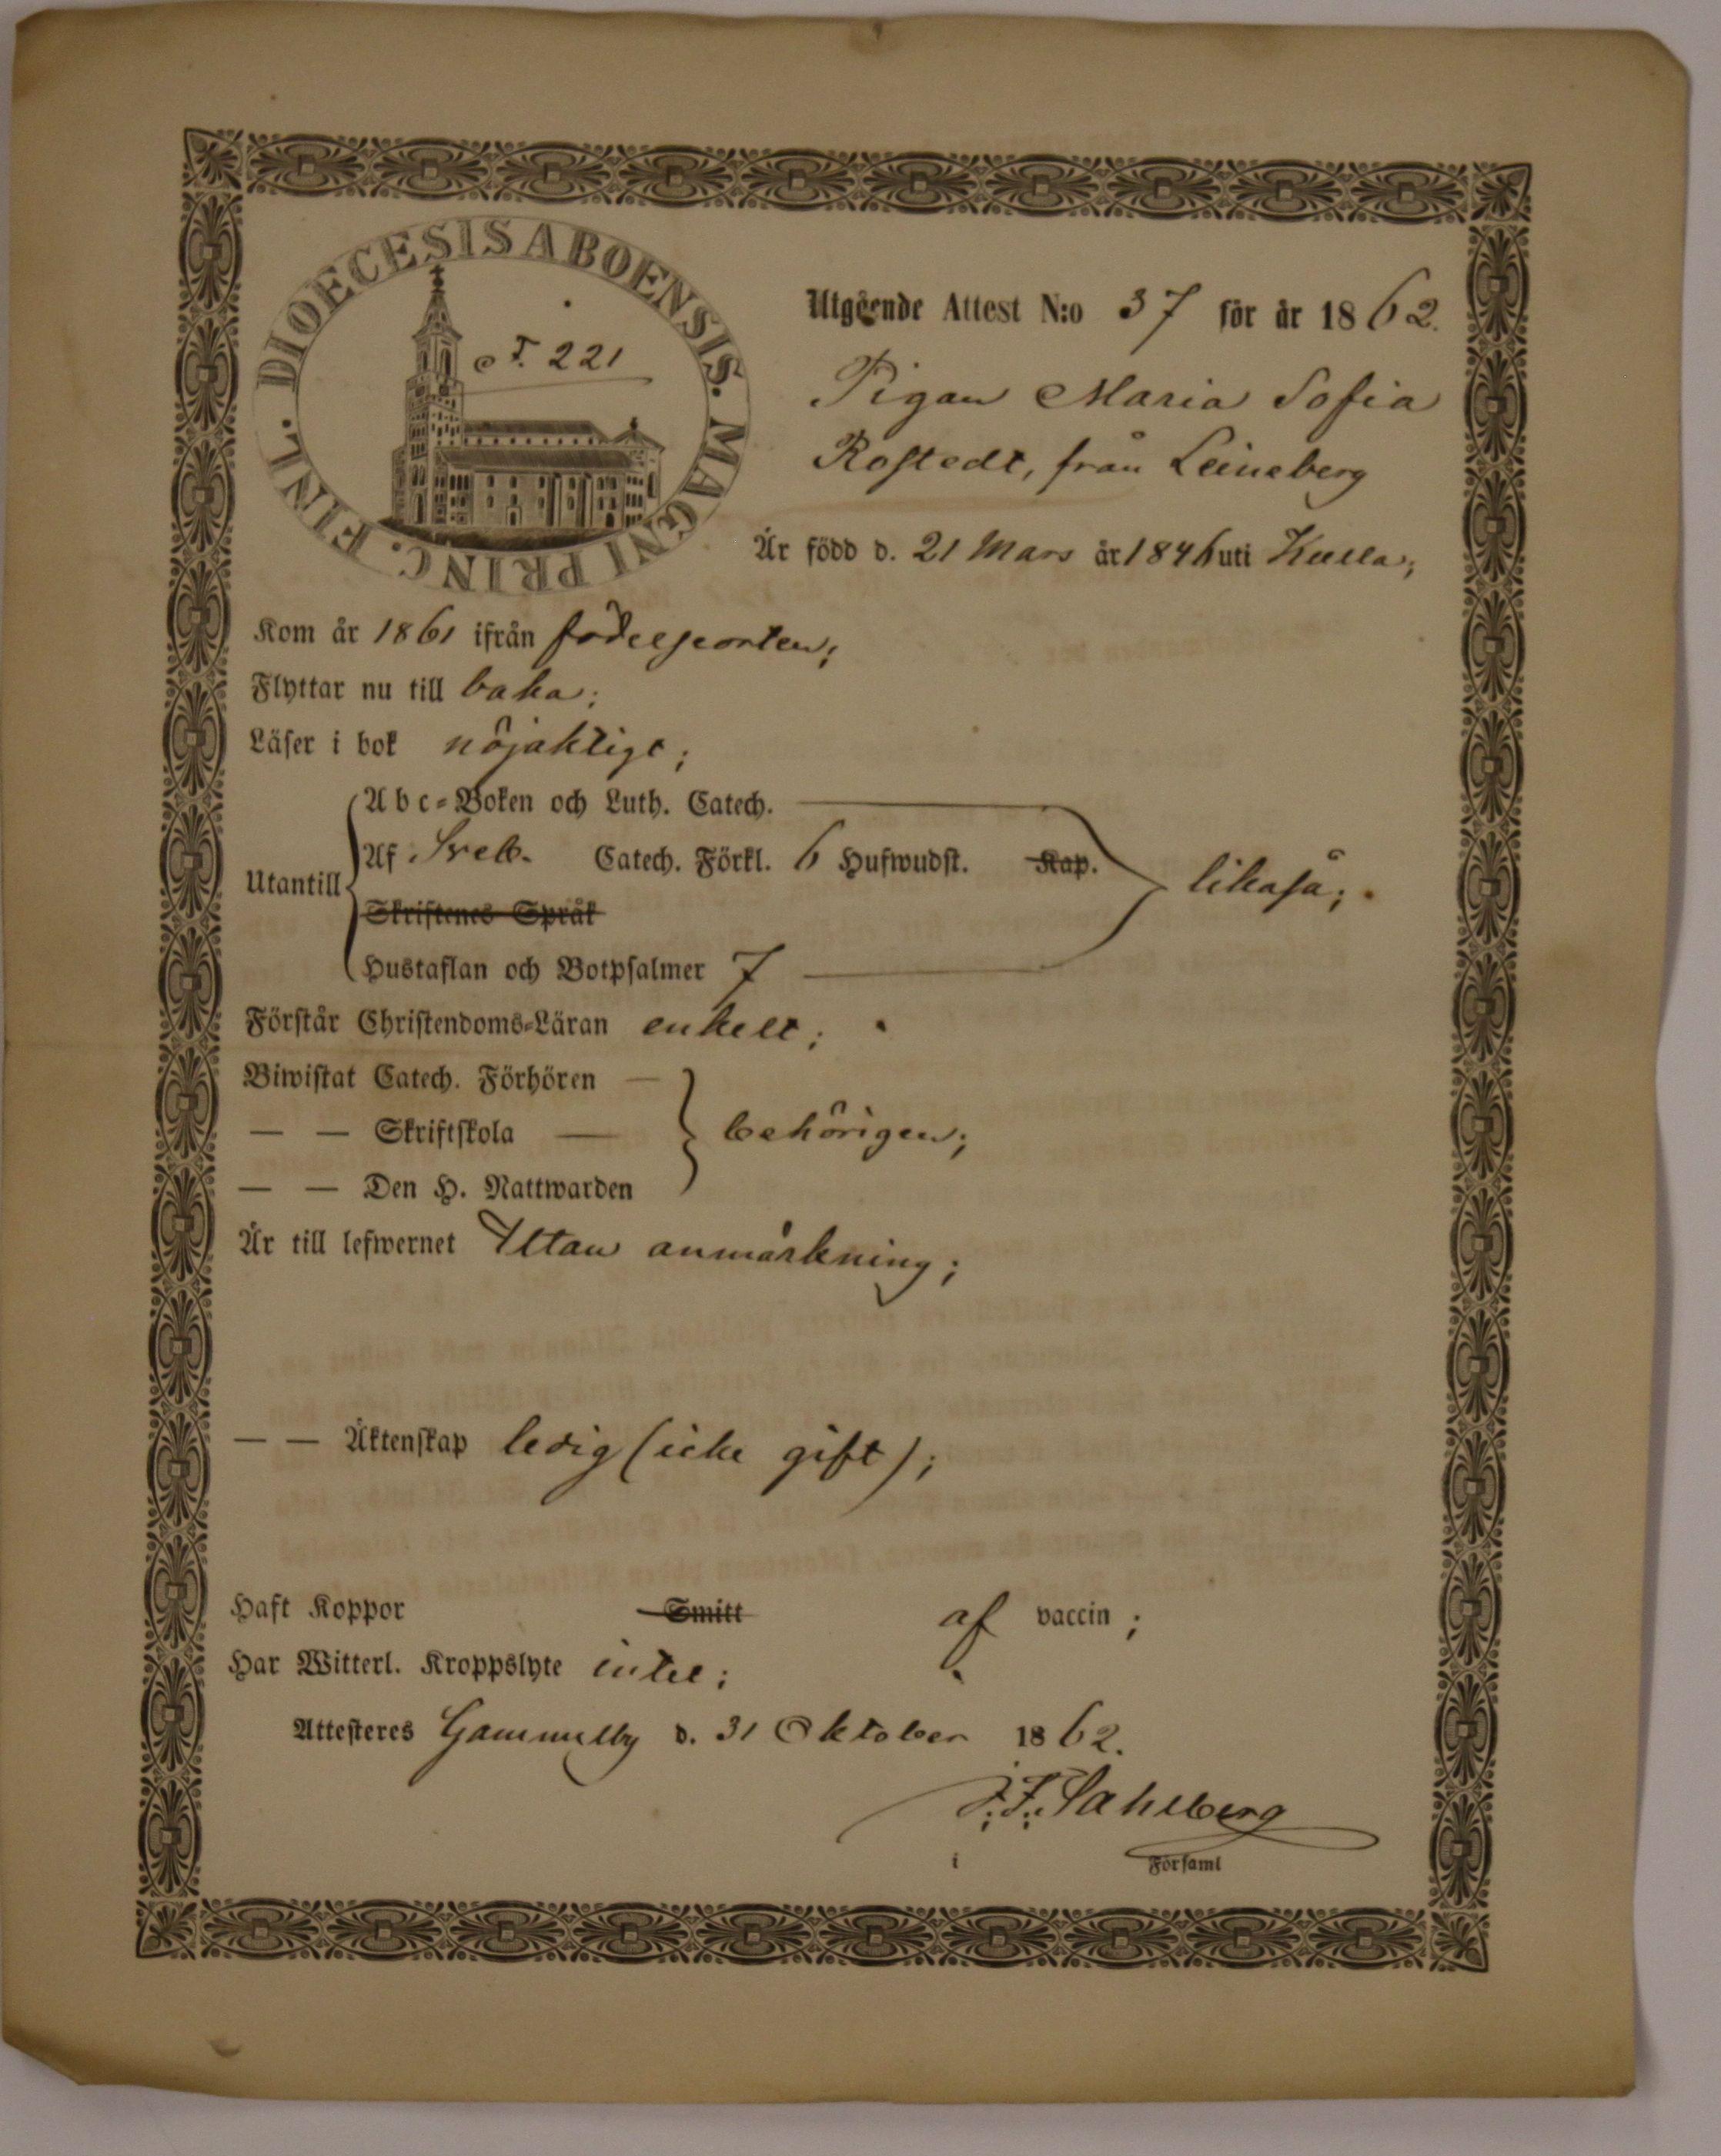 DIOECESIS ABOENSIS. MAGNI PRINC. FINL.
F. 221
Utgående Attest N:o 37 för år 1862.
Pigan Maria Sofia
Rostedt, från Leineberg
Är född d. 21 Mars år 1846 uti Kulla;
Kom år 1861 ifrån födelseorten;
Flyttar nu till baka;
Läser i bok nöjaktigt;
Abc-Boken och Luth. Catech.
Af Sveb. Catech. Förkl. 6 Hufwudst. Kap.
Utantill likaså;
Skriftenes Språk
Hustaflan och Botpsalmer 7
Förstår Christendoms-Läran enkelt;
Biwistat Catech. Förhören —
— — Skriftskola — behörigen;
— — Den H. Nattwarden
Är till lefwernet Utan anmärkning;
— — Äktenskap ledig (icke gift);
Haft Koppor Smitt af vaccin;
Har Witterl. Kroppslyte intet;
Attesteres Gammelby d. 31 Oktober 1862.
J. F. Sahlberg
i Församl